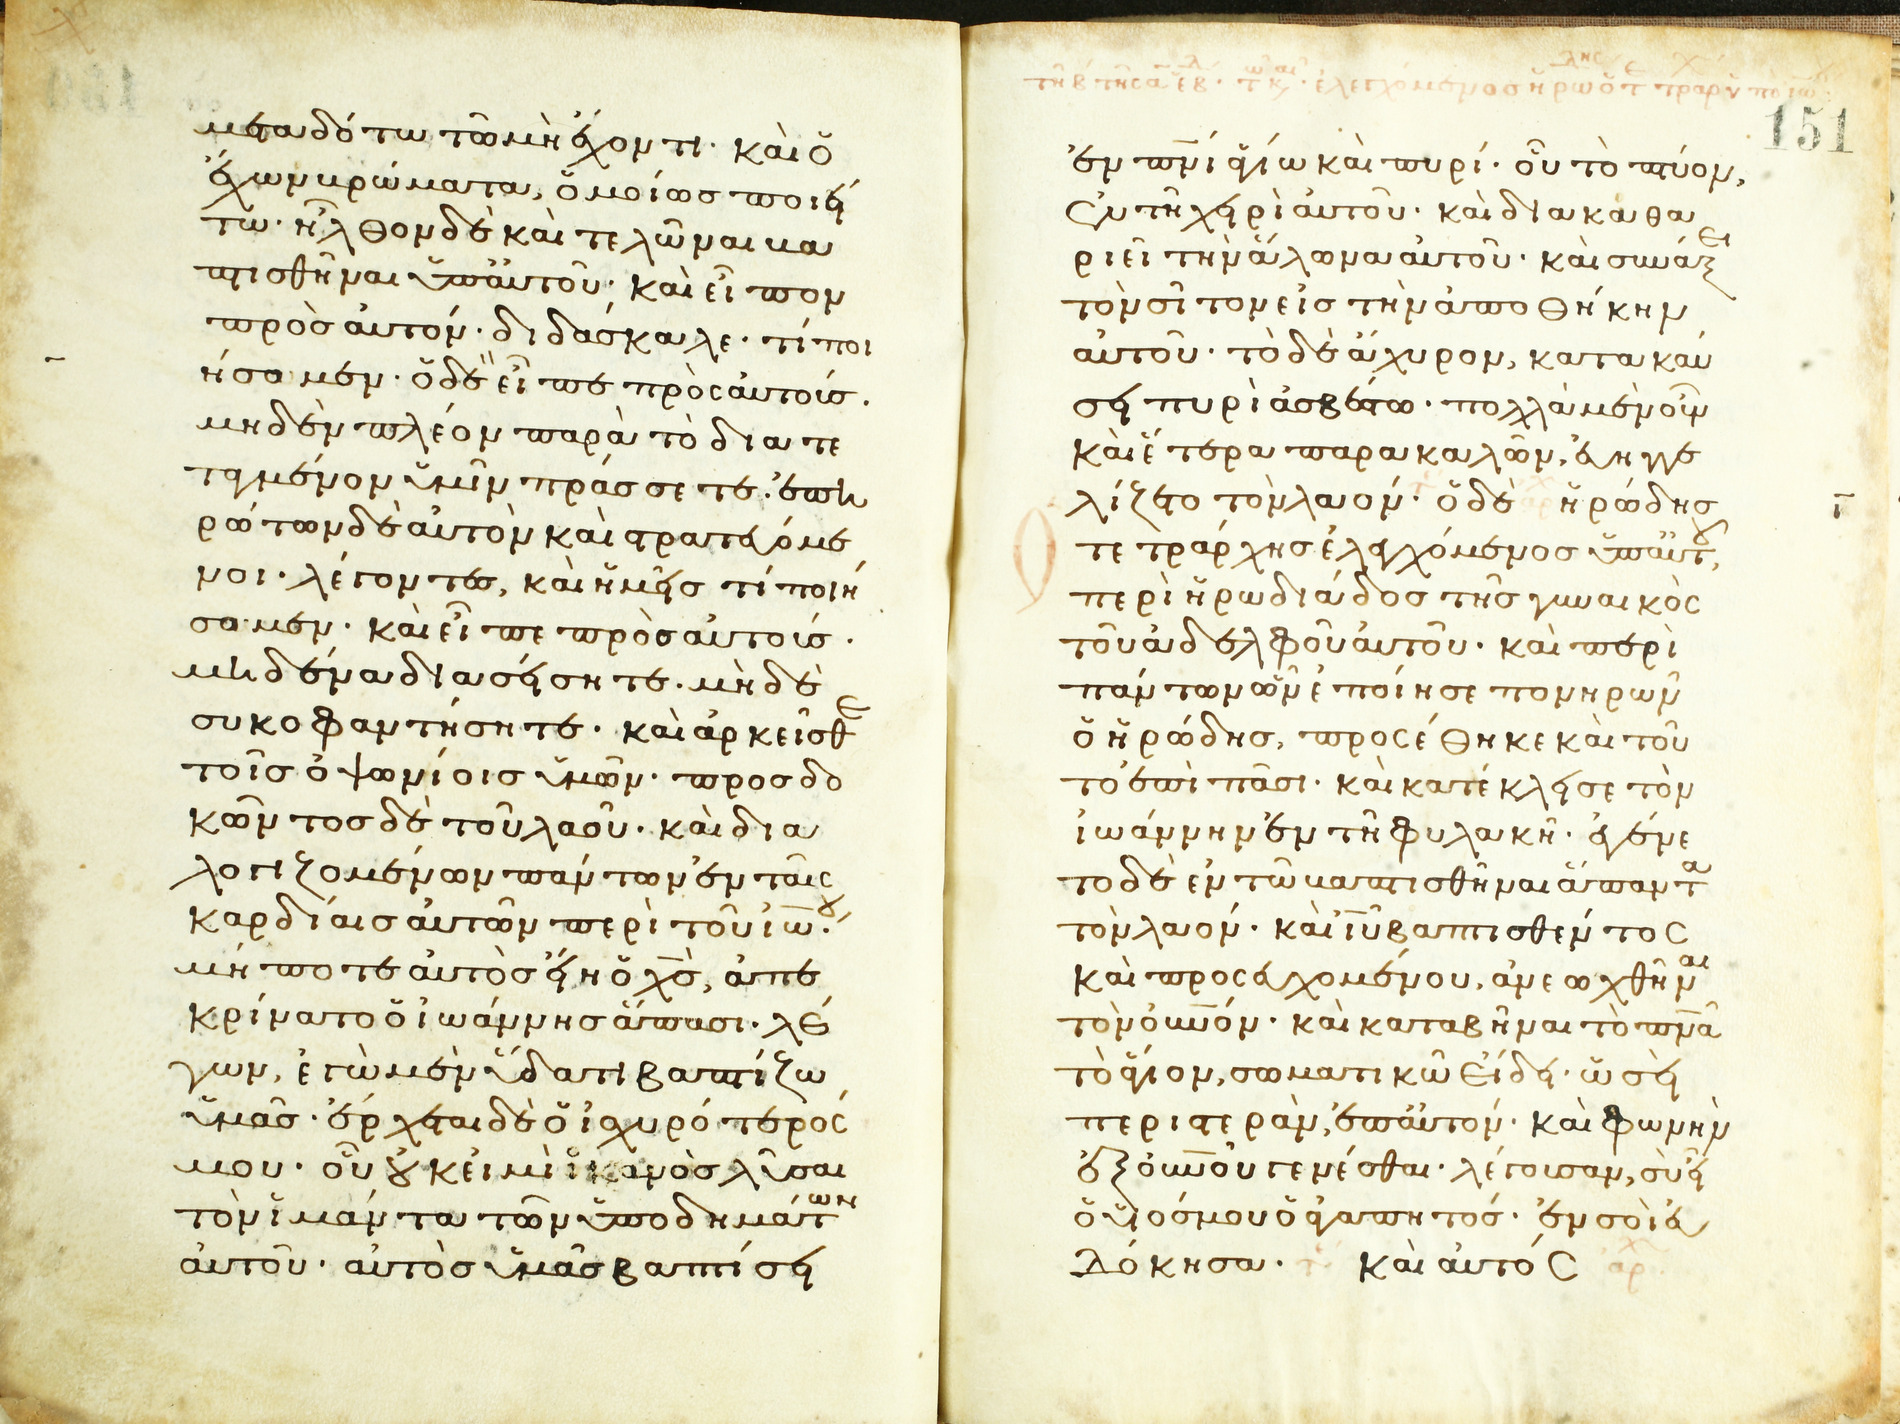 μεταδότω τῶ μὴ ἔχοντι· καὶ ὁ
ἔχων βρώματα, ὁμοίως ποιεί
τω· ἦλθον δὲ καὶ τελῶναι βα
πτισθῆναι ὑπ' αὐτοῦ· καὶ εἶπον
πρὸς αὐτόν· διδάσκαλε· τί ποι
ήσομεν· ὁ δὲ εἶπε πρὸς αὐτούς·
μηδὲν πλέον παρὰ τὸ διατε
ταγμένον ὑμῖν πράσσετε· ἐπη
ρώτων δὲ αὐτὸν καὶ στρατευόμε
νοι· λέγοντες, καὶ ἡμεῖς τί ποιή
σομεν· καὶ εἶπε πρὸς αὐτούς·
μηδένα διασείσητε· μὴδὲ
συκοφαντήσητε· καὶ ἀρκεῖσθε
τοῖς ὀψωνίοις ὑμῶν· προσδο
κῶντος δὲ τοῦ λαοῦ· καὶ δια
λογιζομένων πάντων ἐν ταῖς
καρδίαις αὐτῶν περὶ τοῦ ἰωου·
μήποτε αὐτὸς εἴη ὁ χς, ἀπε
κρίνατο ὁ ἰωάννης ἅπασι· λέ
γων, ἐγὼ μὲν ὕδατι βαπτίζω
ὑμᾶς· ἔρχεται δὲ ὁ ἰσχυρότερός
μου· οὗ οὐκ εἰμὶ ἱκανὸς λῦσαι
τὸν ἱμάντα τῶν ὑποδημάτων
αὐτοῦ· αὐτὸς ὑμᾶς βαπτίσει
151
ἐν πνι ἁγίω καὶ πυρί· οὗ τὸ πτύον,
ἐν τῆ χειρὶ αὐτοῦ· καὶ διακαθα
ριεῖ τὴν ἅλωνα αὐτοῦ· καὶ συνάξει
τὸν σῖτον εἰς τὴν ἀποθήκην
αὐτοῦ· τὸ δὲ ἄχυρον, κατακαύ
σει πυρὶ ἀσβέστω· πολλὰ μὲν οὖν
καὶ ἕτερα παρακαλῶν, εὐηγγε
λίζετο τὸν λαόν· ὁ δὲ ἡρώδης
τετράρχης ἐλεγχόμενος ὑπ' αὐτοῦ,
περὶ ἡρωδιάδος τῆς γυναικὸς
τοῦ ἀδελφοῦ αὐτοῦ· καὶ περὶ
πάντων ὧν ἐποίησε πονηρῶν
ὁ ἡρώδης, προσέθηκε καὶ τοῦ
το ἐπὶ πᾶσι· καὶ κατέκλεισε τὸν
ἰωάννην ἐν τῆ φυλακῆ· ἐγένε
το δὲ ἐν τῶ βαπτισθῆναι ἅπαντα
τὸν λαόν· καὶ ιυ βαπτισθέντος
καὶ προσευχομένου, ἀνεωχθῆναι
τὸν οὐνόν· καὶ καταβῆναι τὸ πνα
τὸ ἅγιον, σωματικῶ εἴδει· ὡσεὶ
περιστερὰν, ἐπ' αὐτόν· καὶ φωνὴν
ἐξ οὐνοῦ γενέσθαι· λέγουσαν, σὺ εἶ
ὁ υἱός μου ὁ ἀγαπητός· ἐν σοὶ εὐ
δόκησα· καὶ αὐτός